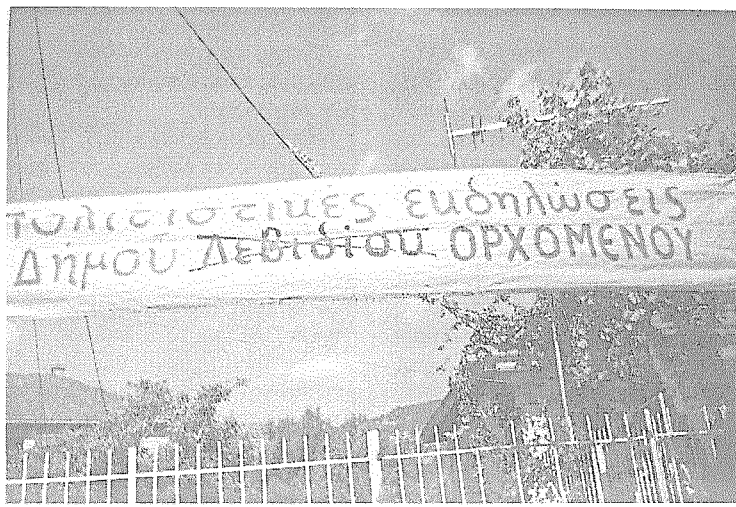 πολιτιστικές εκδηλώσεις
Δήμου Λεβιδίου ΟΡΧΟΜΕΝΟΥ